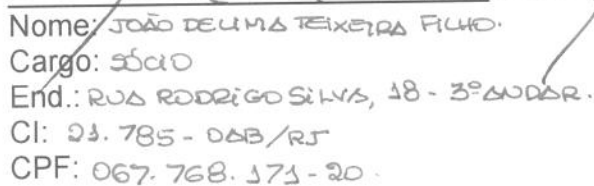 Nome: JOÃO DE LIMA TEIXEIRA FILHO.
Cargo: SÓCIO
End.: RUA RODRIGO SILVA, 18 - 3º ANDAR.
CI: 21.785 - OAB/RJ
CPF: 067.768.171-20.